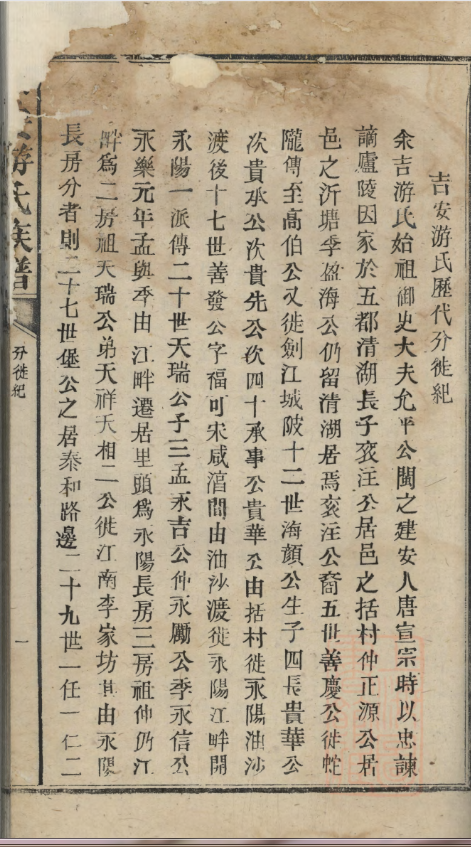 吉安游氏歷代分徙紀
余吉游氏始祖御史大夫允平公閩之建安人唐宣宗時以忠諫
謫廬陵因家於五都清湖長子袞汪公居邑之括村仲正源公居
邑之沂塘季盈海公仍留清湖居焉袞汪公裔五世善慶公徙蛇
隴傳至高伯公又徙劍江城陂十二世海顏公生子四長貴華公
次貴承公次貴先公次四十承事公貴華公由括村徙永陽油沙
渡後十七世善發公字福可宋咸淳間由油沙渡徙永陽江畔開
永陽一派傳二十世天瑞公子三孟永吉公仲永勵公季永信公
永樂元年孟與季由江畔遷居里頭為永陽長房三房祖仲仍江
畔為二房祖天瑞公弟天祥天相二公徙江南李家坊其由永陽
長房分者則二十七世堡公之居泰和路邊二十九世一任一仁二
游氏族譜
分徙紀
一